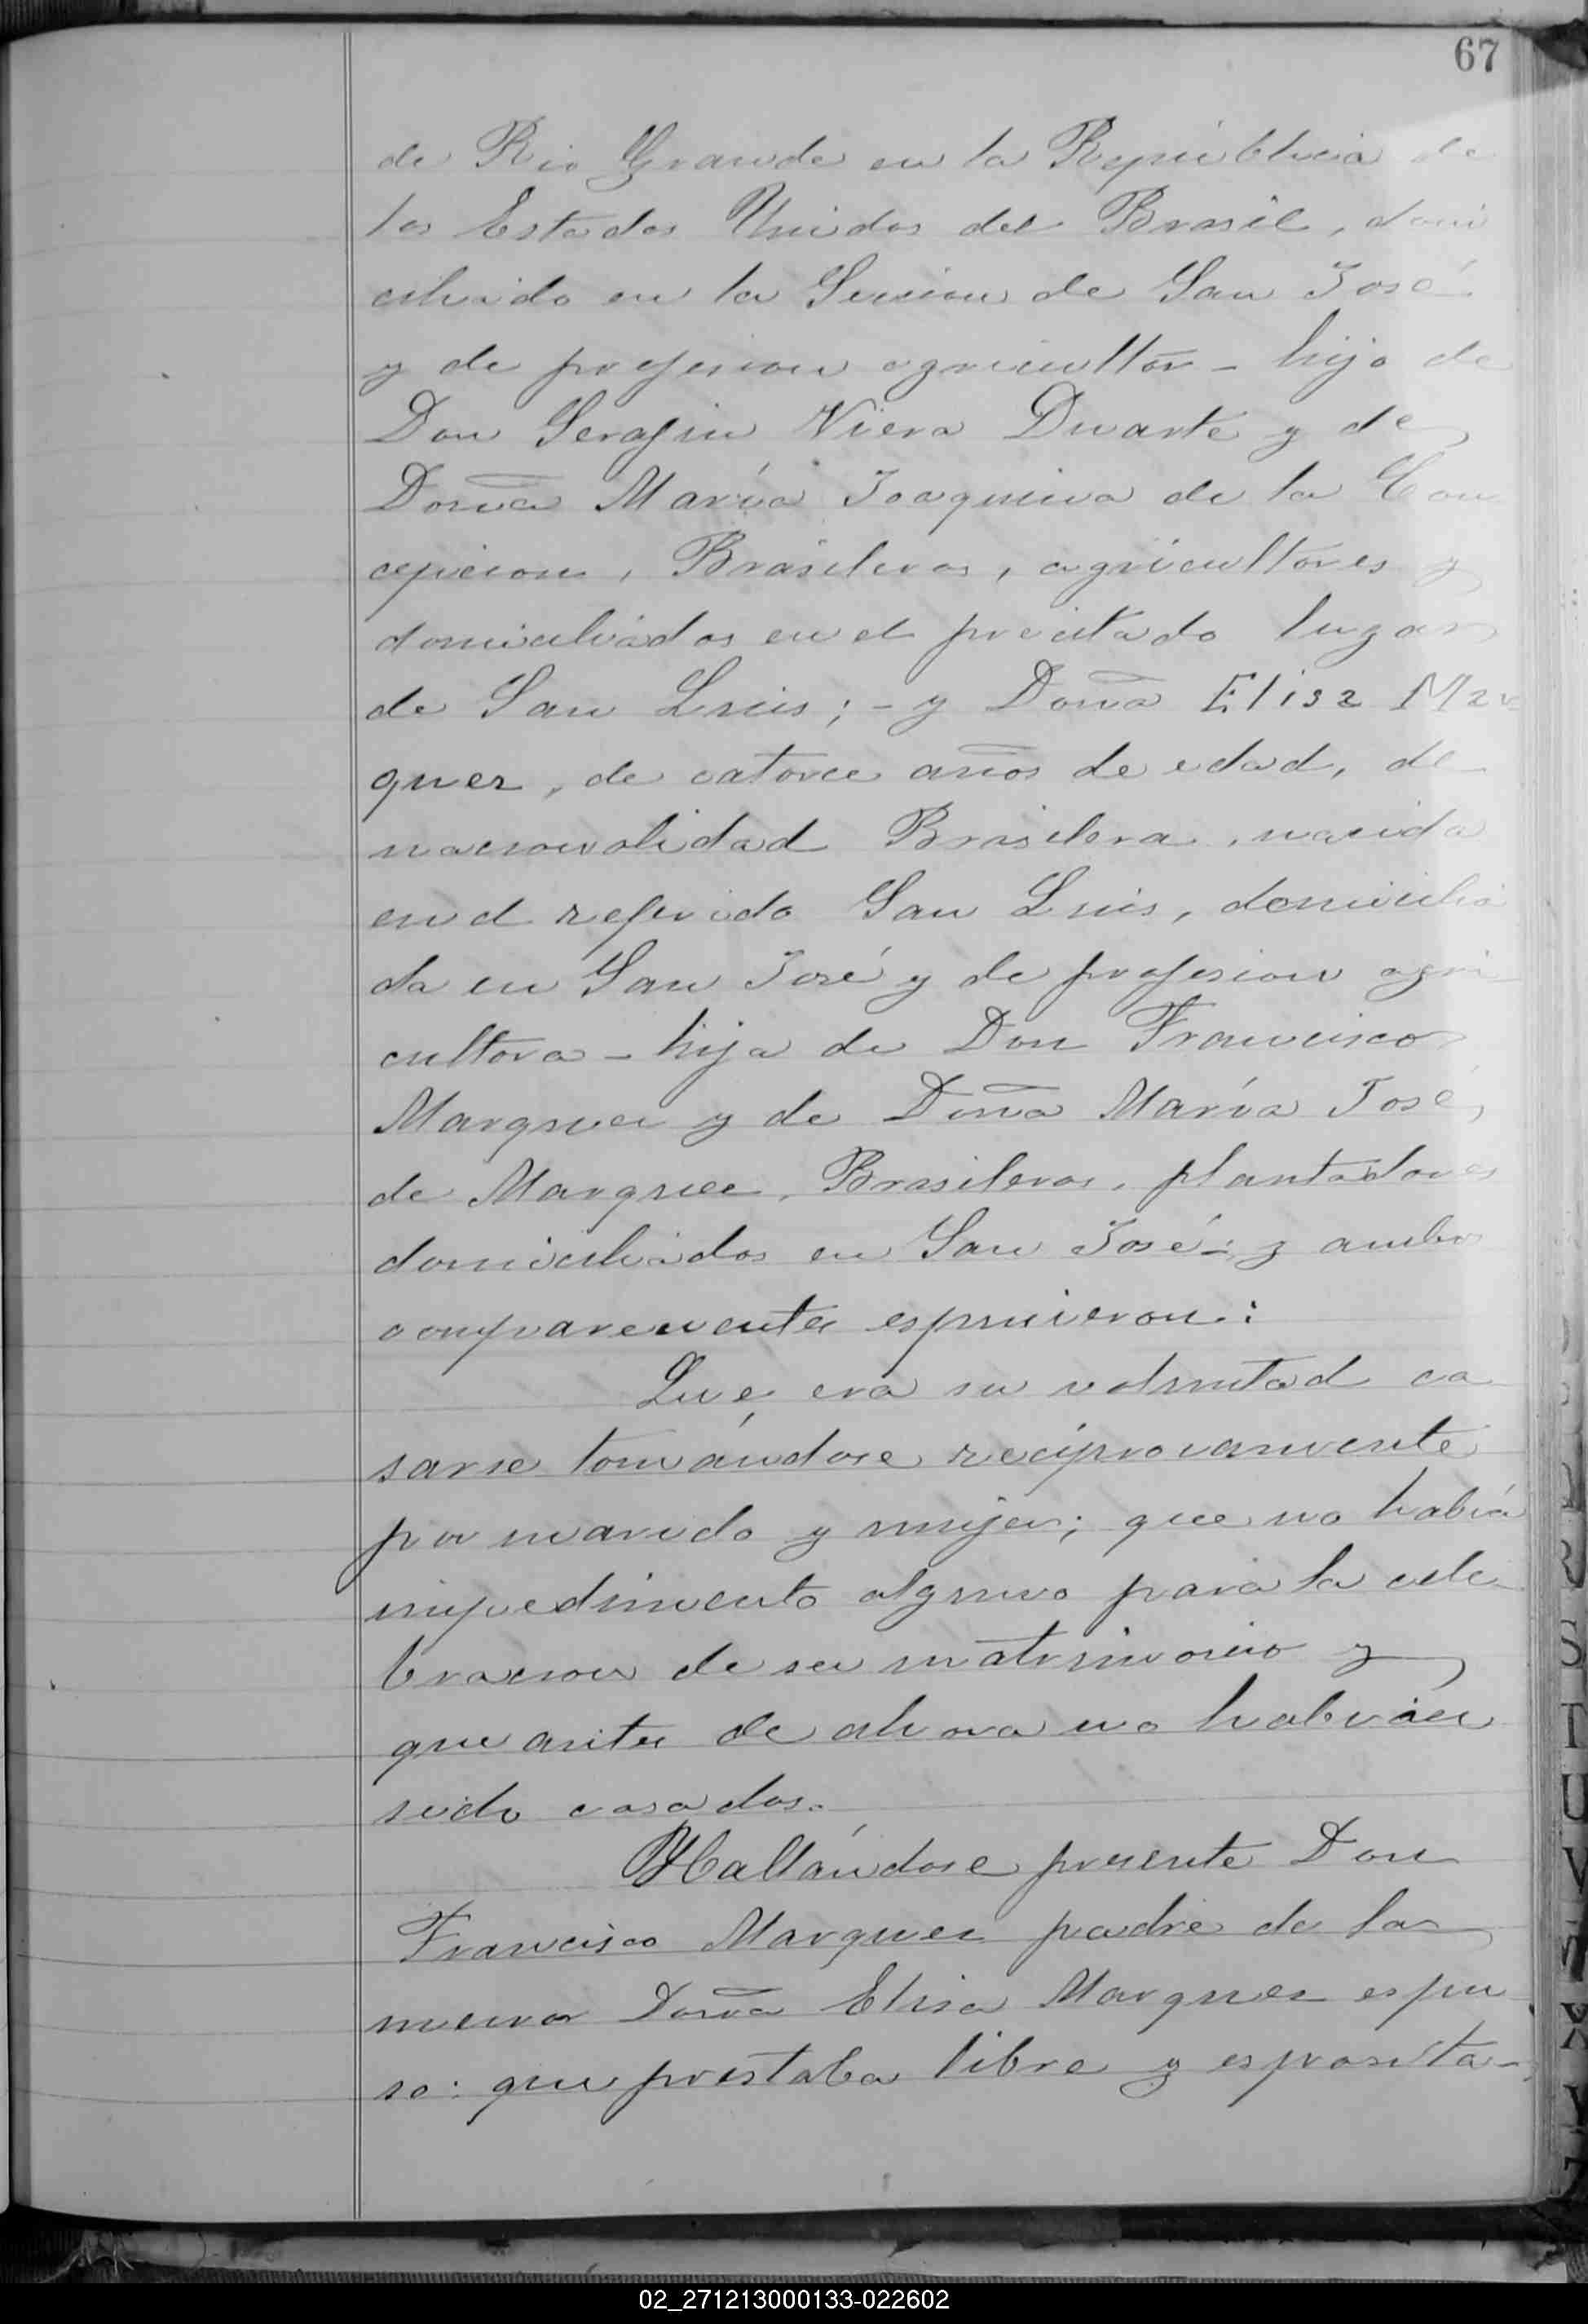 67
de Rio Grande en la República de
los Estados Unidos del Brasil, domi
ciliado en la Seccion de San José
y de profesion agricultor - hijo de
Don Serafin Viera Duarte y de
Doña María Joaquina de la Con
cepcion, Brasileros, agricultores y
domiciliados en el precitado lugar
de San Luis; - y Doña Elisa Mar
quez, de catorce años de edad, de
nacionalidad Brasilera, nacida
en el referido San Luis, domicilia
da en San José y de profesion agri
cultora - hija de Don Francisco
Marquez y de Doña María José
de Marquez, Brasileros, plantadores
domiciliados en San José; y ambos
comparecientes espusieron:
Que era su voluntad ca
sarse tomándose reciprocamente
por marido y mujer; que no había
impedimento alguno para la cele
bracion de su matrimonio y
que antes de ahora no habían
sido casados.
Hallándose presente Don
Francisco Marquez padre de la
menor Doña Elisa Marquez espu
so: que prestaba libre y esponta-
S
T
U
V
X
Y
Z
02_271213000133-022602